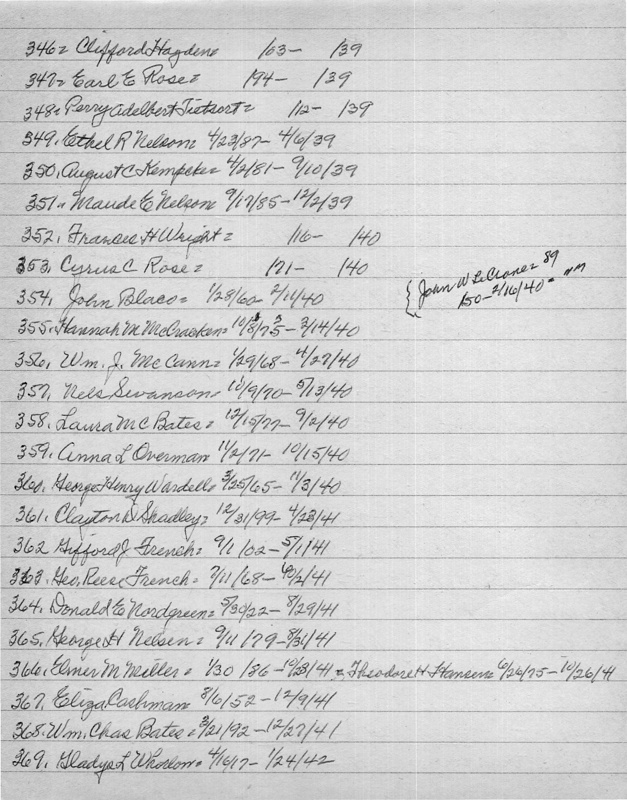 346= Clifford Hayden= /03- /39
347= Earl E Rose= /94- /39
348= Perry Adelbert Tietsort= /12- /39
349. Ethel R Nelson= 4/23/87- 4/6/39
350. August C Kempcke= 4/2/81- 9/10/39
351= Maude E Nelson 9/17/85- 12/2/39
352. Frances H Wright= /16- /40
353. Cyrus C Rose= /71- /40
{John W LeCrone= 89
/50- 2/16/40=
354. John Blaco= 1/28/60- 2/11/40
355. Hannah M. McCracken= 10/8/75- 3/14/40
356. Wm. J. McCann= 1/29/68- 4/27/40
357. Nels Swanson= 10/9/70- 5/13/40
358. Laura Mc Bates= 12/15/77- 9/2/40
359. Anna L Overman 11/2/71- 10/15/40
360. George Henry Wardell= 3/25/65- 11/3/40
361. Clayton D. Shadley= 12/31/99- 4/23/41
362 Gifford J. French= 9/1/02- 5/1/41
363. Geo. Reese French= 7/11/68- 6/2/41
364. Donald E Nordgreen= 5/30/22- 8/29/41
365. George H Nelsen= 9/11/79- 8/31/41
366. Elmer M Miller= 1/30/86- 10/23/41 = Theodore H Hansen= 6/26/75- 10/26/41
367. Eliza Cashman 8/6/52- 12/9/41
368. Wm. Chas Bates= 3/21/92- 12/27/41
369. Gladys L Whorlow= 4/16/17- 1/24/42